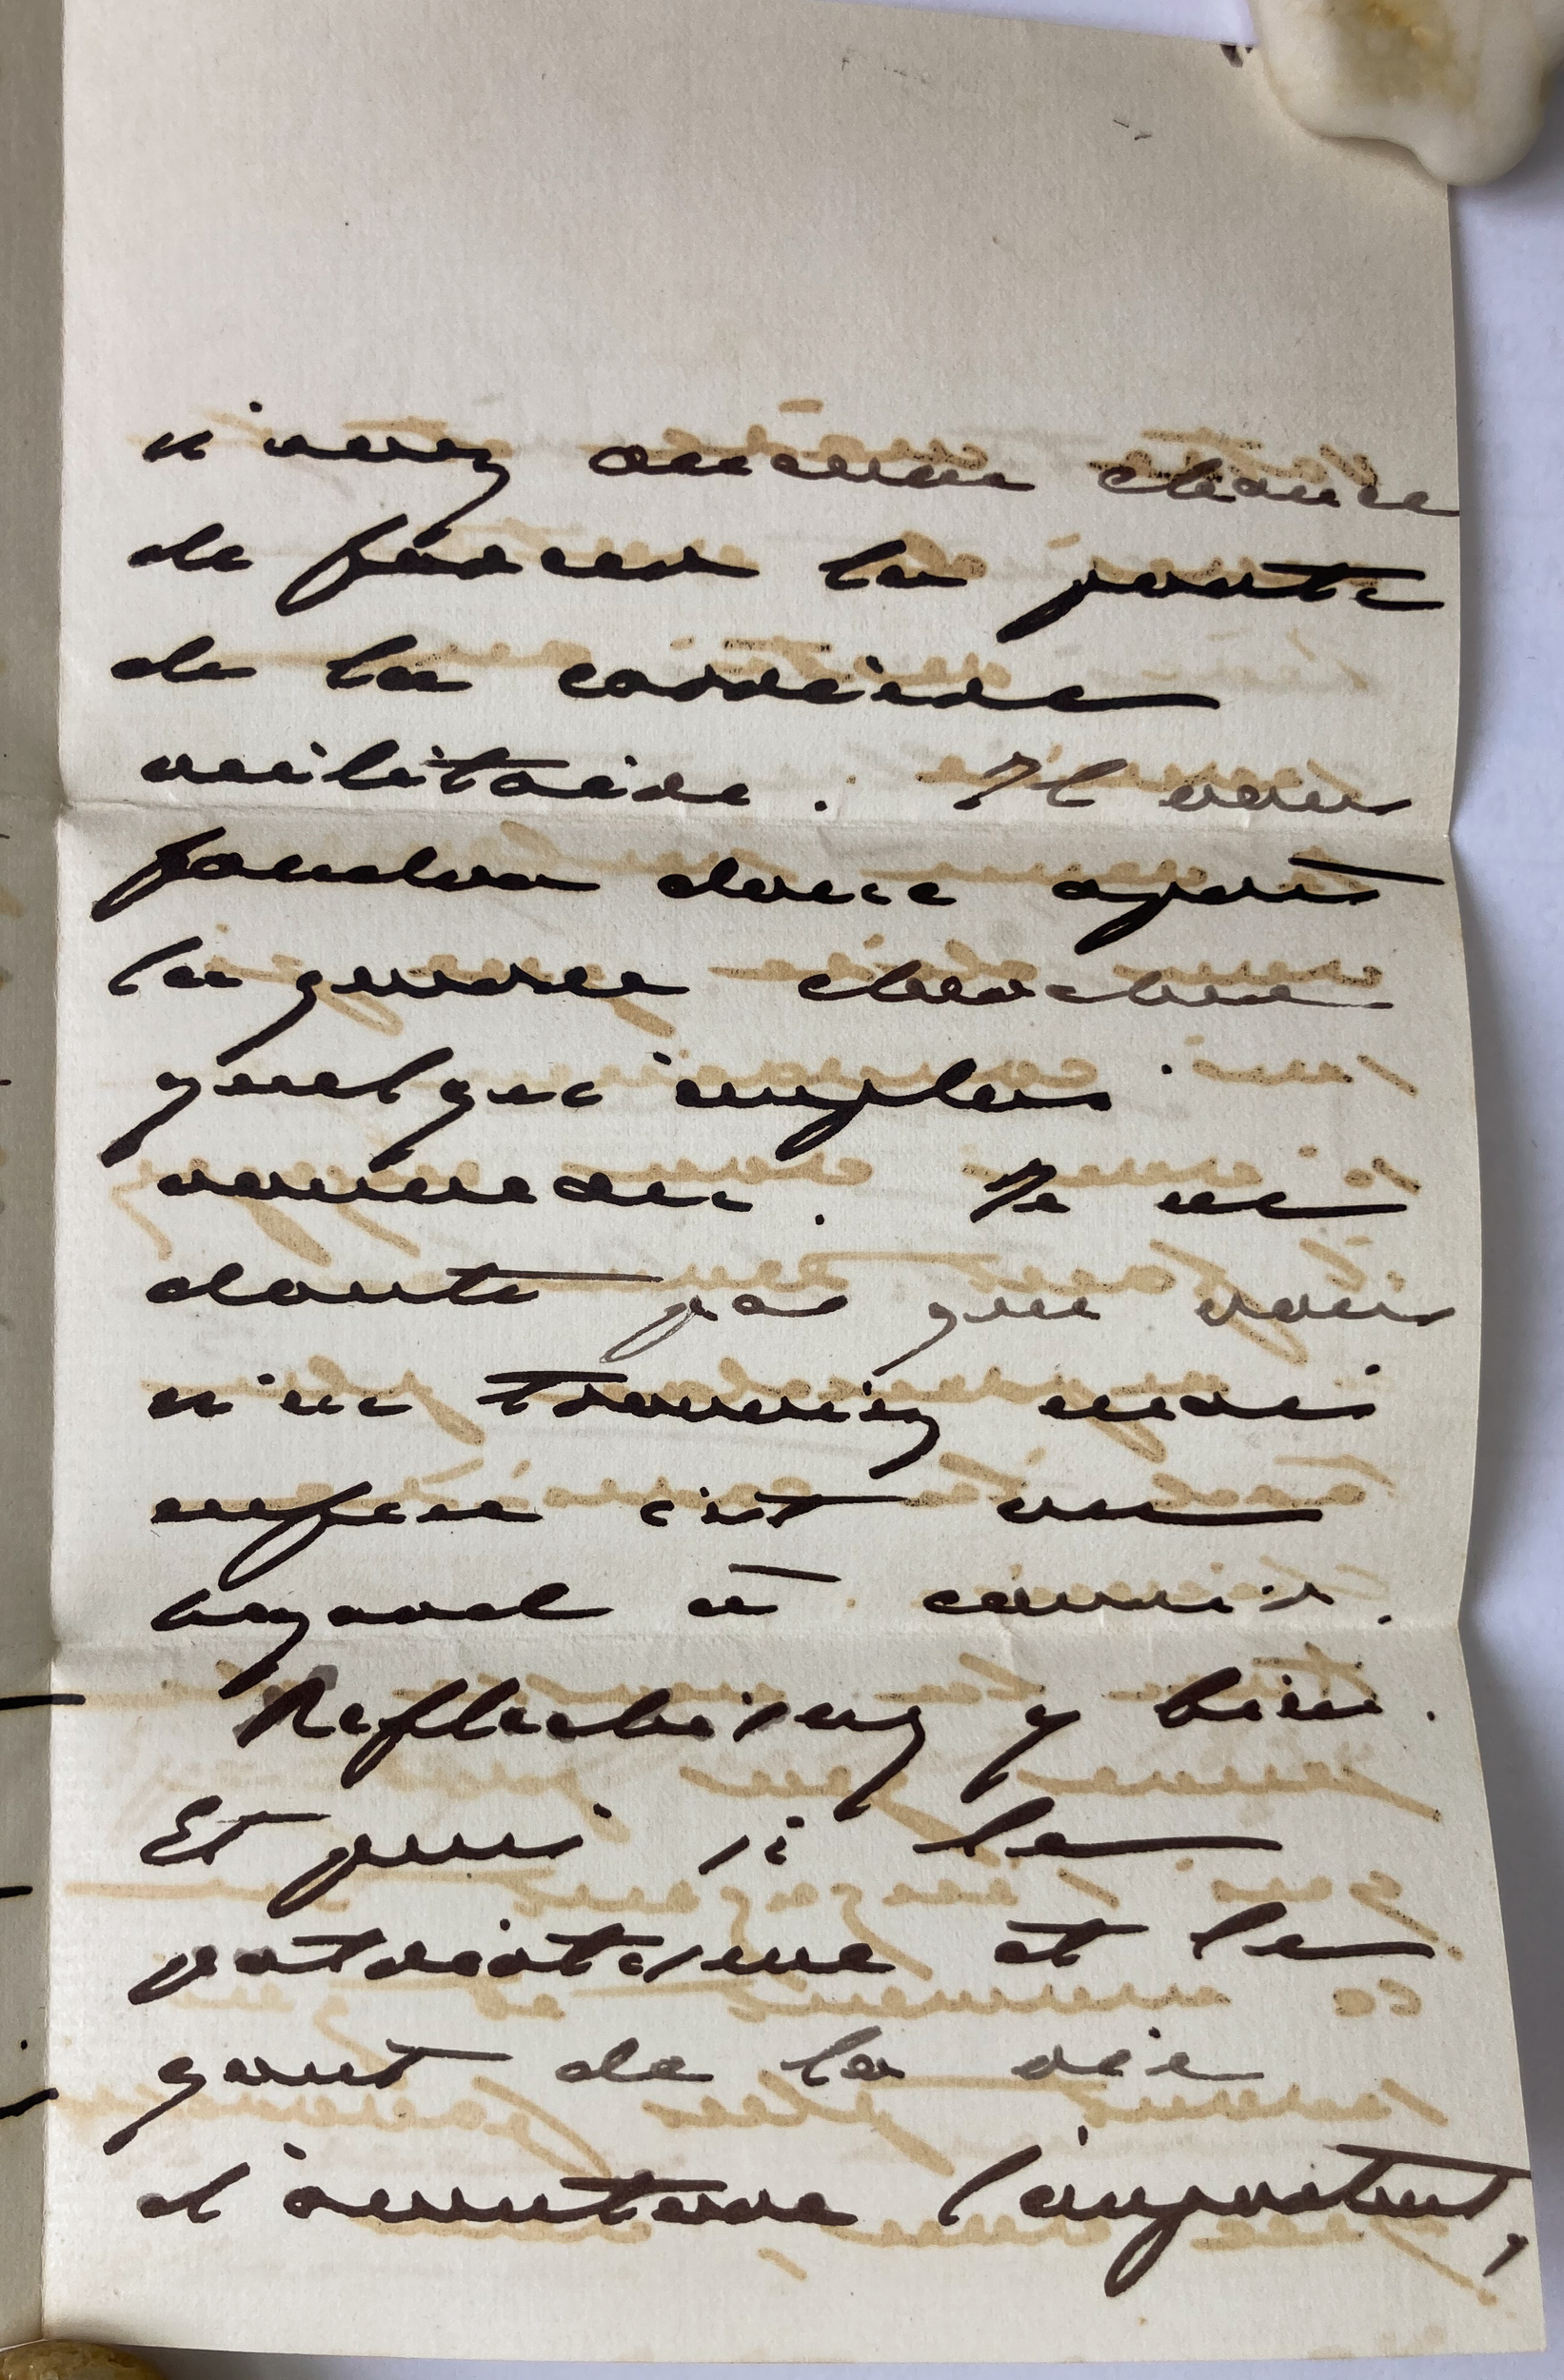 n'avez aucune chance
de forcer la porte
de la carrière
militaire. Il vous
faudra donc après
la guerre chercher
quelque emploi
rémunéré. Je ne
doute pas que vous
n'en trouviez mais
enfin c'est un
hazard à courir.
Reflechissez y bien.
Et puis si le
patriotisme et le
gout de la vie
d'aventure l'emportent,